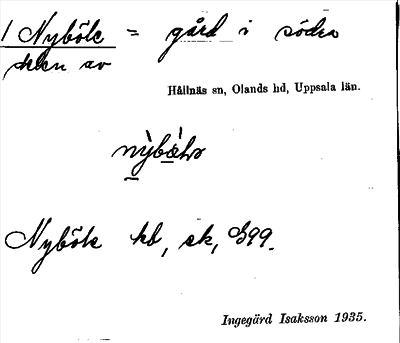 1 Nyböle = gård i södra
delen av
Hållnäs sn, Olands hd, Uppsala län.
Nyböle kb, ek,
Ingegärd Isaksson 1935.